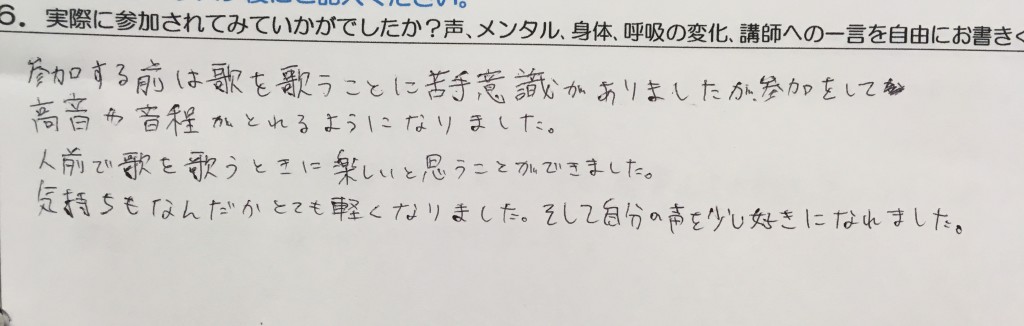 ください。
6. 実際に参加されてみていかがでしたか？声、メンタル、身体、呼吸の変化、講師への一言を自由にお書きく
参加する前は歌を歌うことに苦手意識がありましたが、参加をして
高音や音程がとれるようになりました。
人前で歌を歌うときに楽しいと思うことができました。
気持ちもなんだかとても軽くなりました。そして自分の声を少し好きになれました。